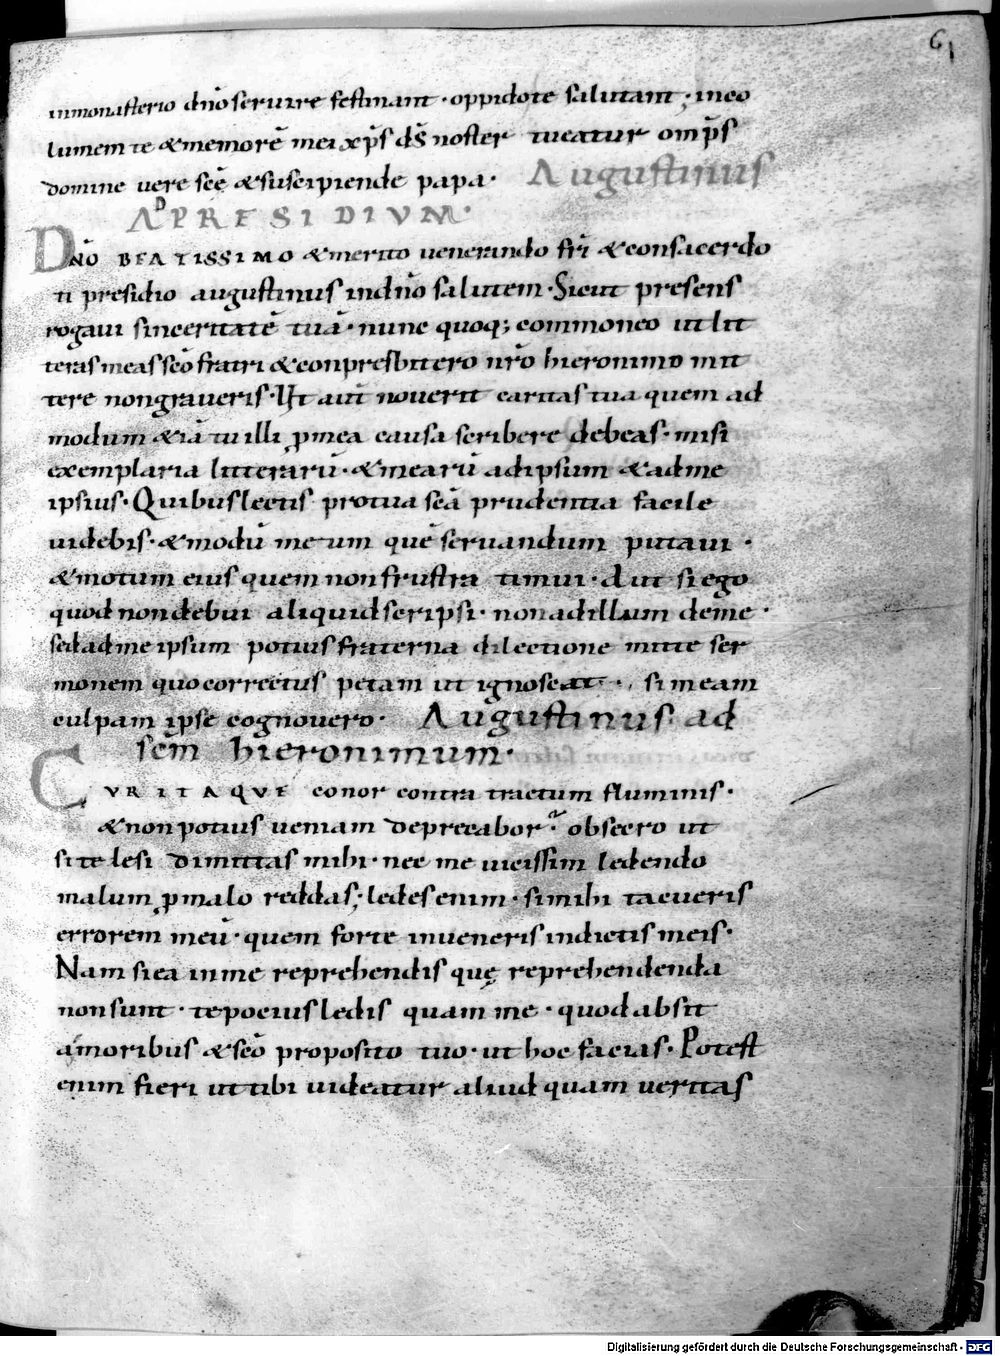 61
inmonasterio dn̄o seruire festinant · oppidote salutant ; inco
lumem te &memorē mei xp̄s ds̄ noster tueatur om̄ps
domine uere scē &suscipiende papa · Augustinus
AD PRESIDIVM ·
DN̄O BEATISSIMO &merito uenerando fr̄i &consacerdo
ti presidio augustinus indn̄o salutem · Sicut presens
rogaui sinceritatē tuā · nunc quoq; commoneo ut lit
teras meas scō fratri &conpresbitero nr̄o hieronimo mit
tere nongraueris · Ut aut̄ nouerit caritas tua quem ad
modum &iā tu illi p̱ mea causa scribere debeas · misi
exemplaria litterarū · &mearū adipsum &adme
ipsius · Quibus lectis protua scā prudentia facile
uidebis · &modū meum quē seruandum putaui ·
&motum eius quem nonfrustra timui · Aut siego
quod nondebui aliquidscripsi · nonadillum deme ·
sedadme ipsum potius fraterna dilectione mitte ser
monem quo correctus petam ut ignoscat · , simeam
culpam ipse cognouero · Augustinus ad
scm̄ hieronimum ·
CVR ITAQVE conor contra tractum fluminis ·
&non potius ueniam deprecabor · obsecro ut
site lesi dimittas mihi · nec me uicissim ledendo
malum p̱ malo reddas ; ledes enim · simihi tacueris
errorem meū · quem forte inueneris indictis meis ·
Nam siea inme reprehendis quę reprehendenda
nonsunt · tepocius ledis quam me · quod absit
amoribus &scō proposito tuo · ut hoc facias · Potest
enim fieri ut tibi uideatur aliud quam ueritas
Digitalisierung gefördert durch die Deutsche Forschungsgemeinschaft - DFG